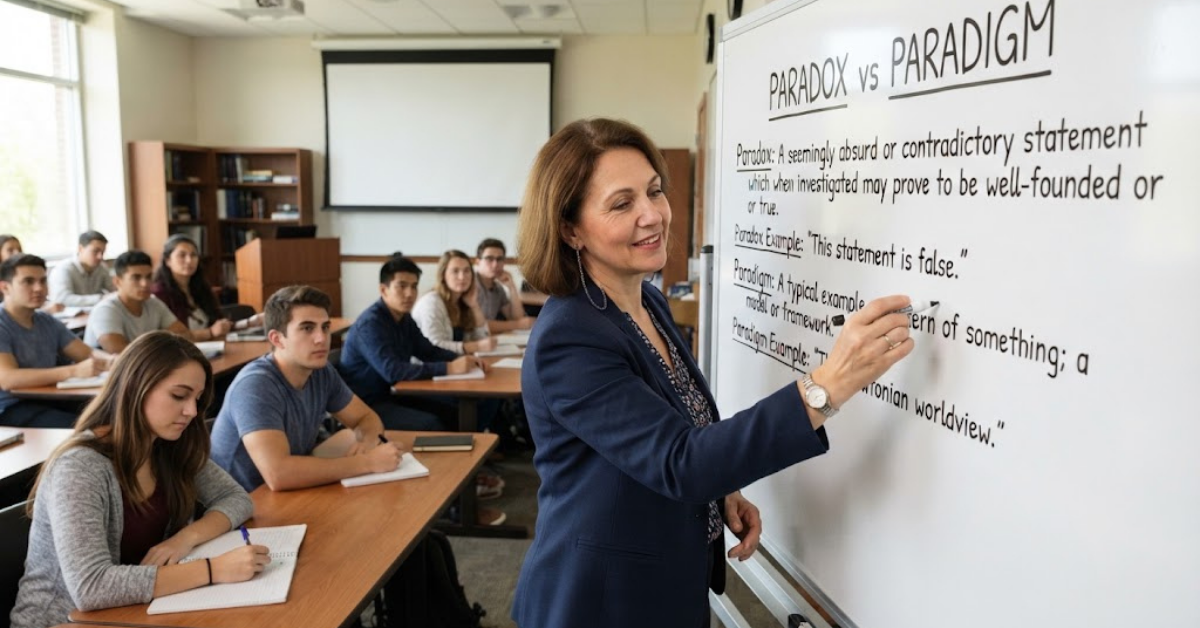 PARADOX vs PARADIGM
Paradox: A seemingly absurd or contradictory statement
which when investigated may prove to be well-founded or
or true.
Paradox Example: "This statement is false."
Paradigm: A typical example ern of something; a
model or framework.
Paradigm Example: "T onian worldview."